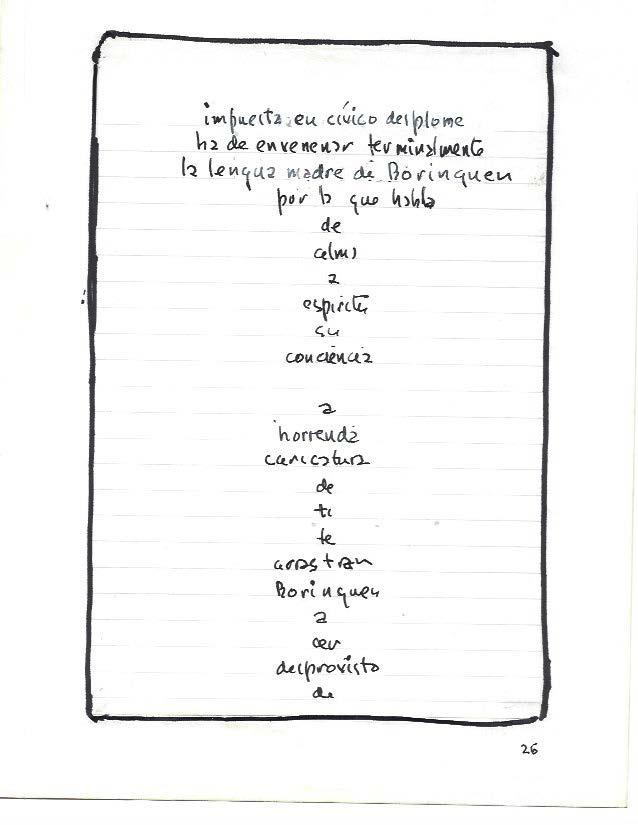 impuesta en cívico desplome
ha de envenenar terminalmente
la lengua madre de Borinquen
por la que habla
de
alma
a
espíritu
su
conciencia
a
horrenda
caricatura
de
ti
te
arrastran
Borinquen
a
ser
desprovisto
de
26